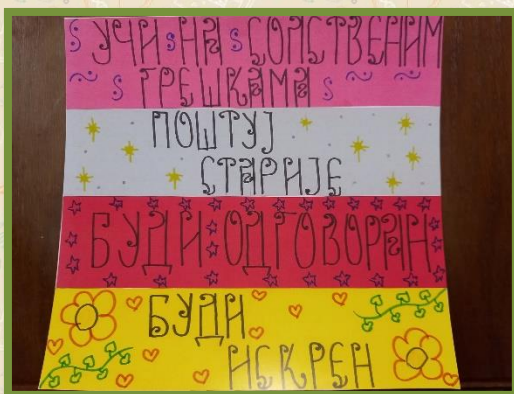 УЧИ НА СОПСТВЕНИМ
ГРЕШКАМА
ПОШТУЈ
СТАРИЈЕ
БУДИ ОДГОВОРАН
БУДИ
ИСКРЕН